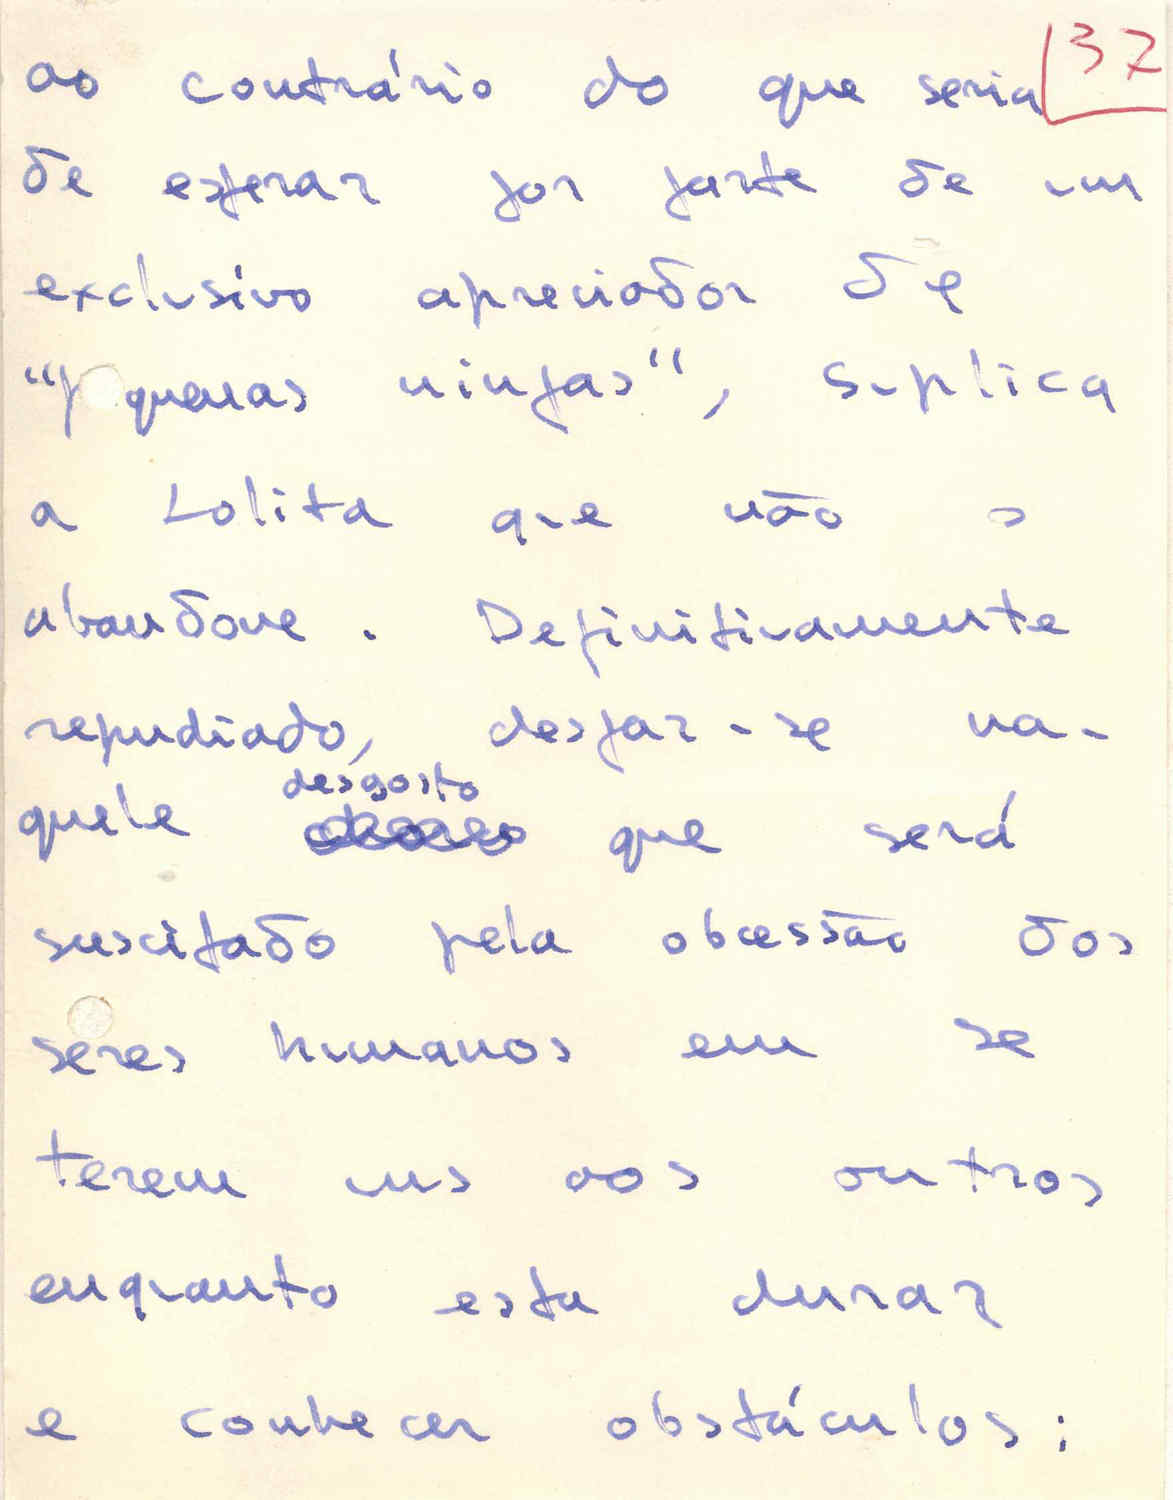 37
ao contrário do que seria
de esperar por parte de um
exclusivo apreciador de
"pquenas ninfas", suplica
a Lolita que não o
abandone. Definitivamente
repudiado, desfar-se na-
desgosto
quele choro que será
suscitado pela obcessão dos
seres humanos em se
terem uns aos outros
enquanto esta durar
e conhecer obstáculos: